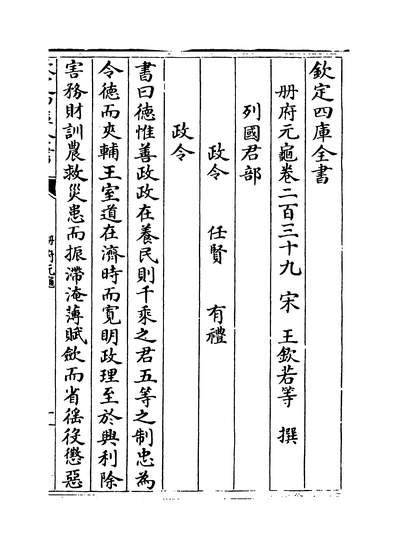 欽定四庫全書
冊府元龜卷二百三十九　宋　王欽若等　撰
列國君部
政令　任賢　有禮
政令
書曰德惟善政政在養民則千乘之君五等之制忠為
令徳而夾輔王室道在濟時而寛明政理至於興利除
害務財訓農救災患而振滯淹薄賦斂而省徭役懲惡
冊府元龜